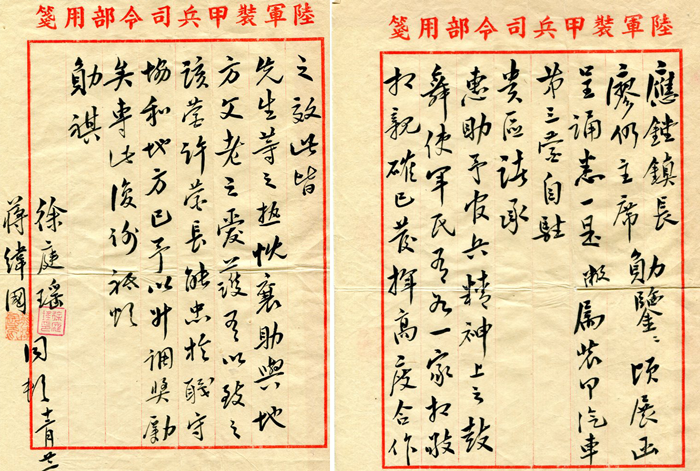 陸軍裝甲兵司令部用箋
鎮長
主席 勛鑒：頃展函
呈誦悉一是敝屬裝甲汽車
第三營自駐
貴區諸承
惠助予官兵精神上之鼓
舞使軍民有如一家相敬
相親確已發揮高度合作
陸軍裝甲兵司令部用箋
之效此皆
先生等之熱忱襄助與地
方父老之愛護有以致之
該營許營長能忠於職守
協和地方已予以升調獎勵
矣專此復謝祗頌
勛祺
徐庭瑤
蔣緯國 同